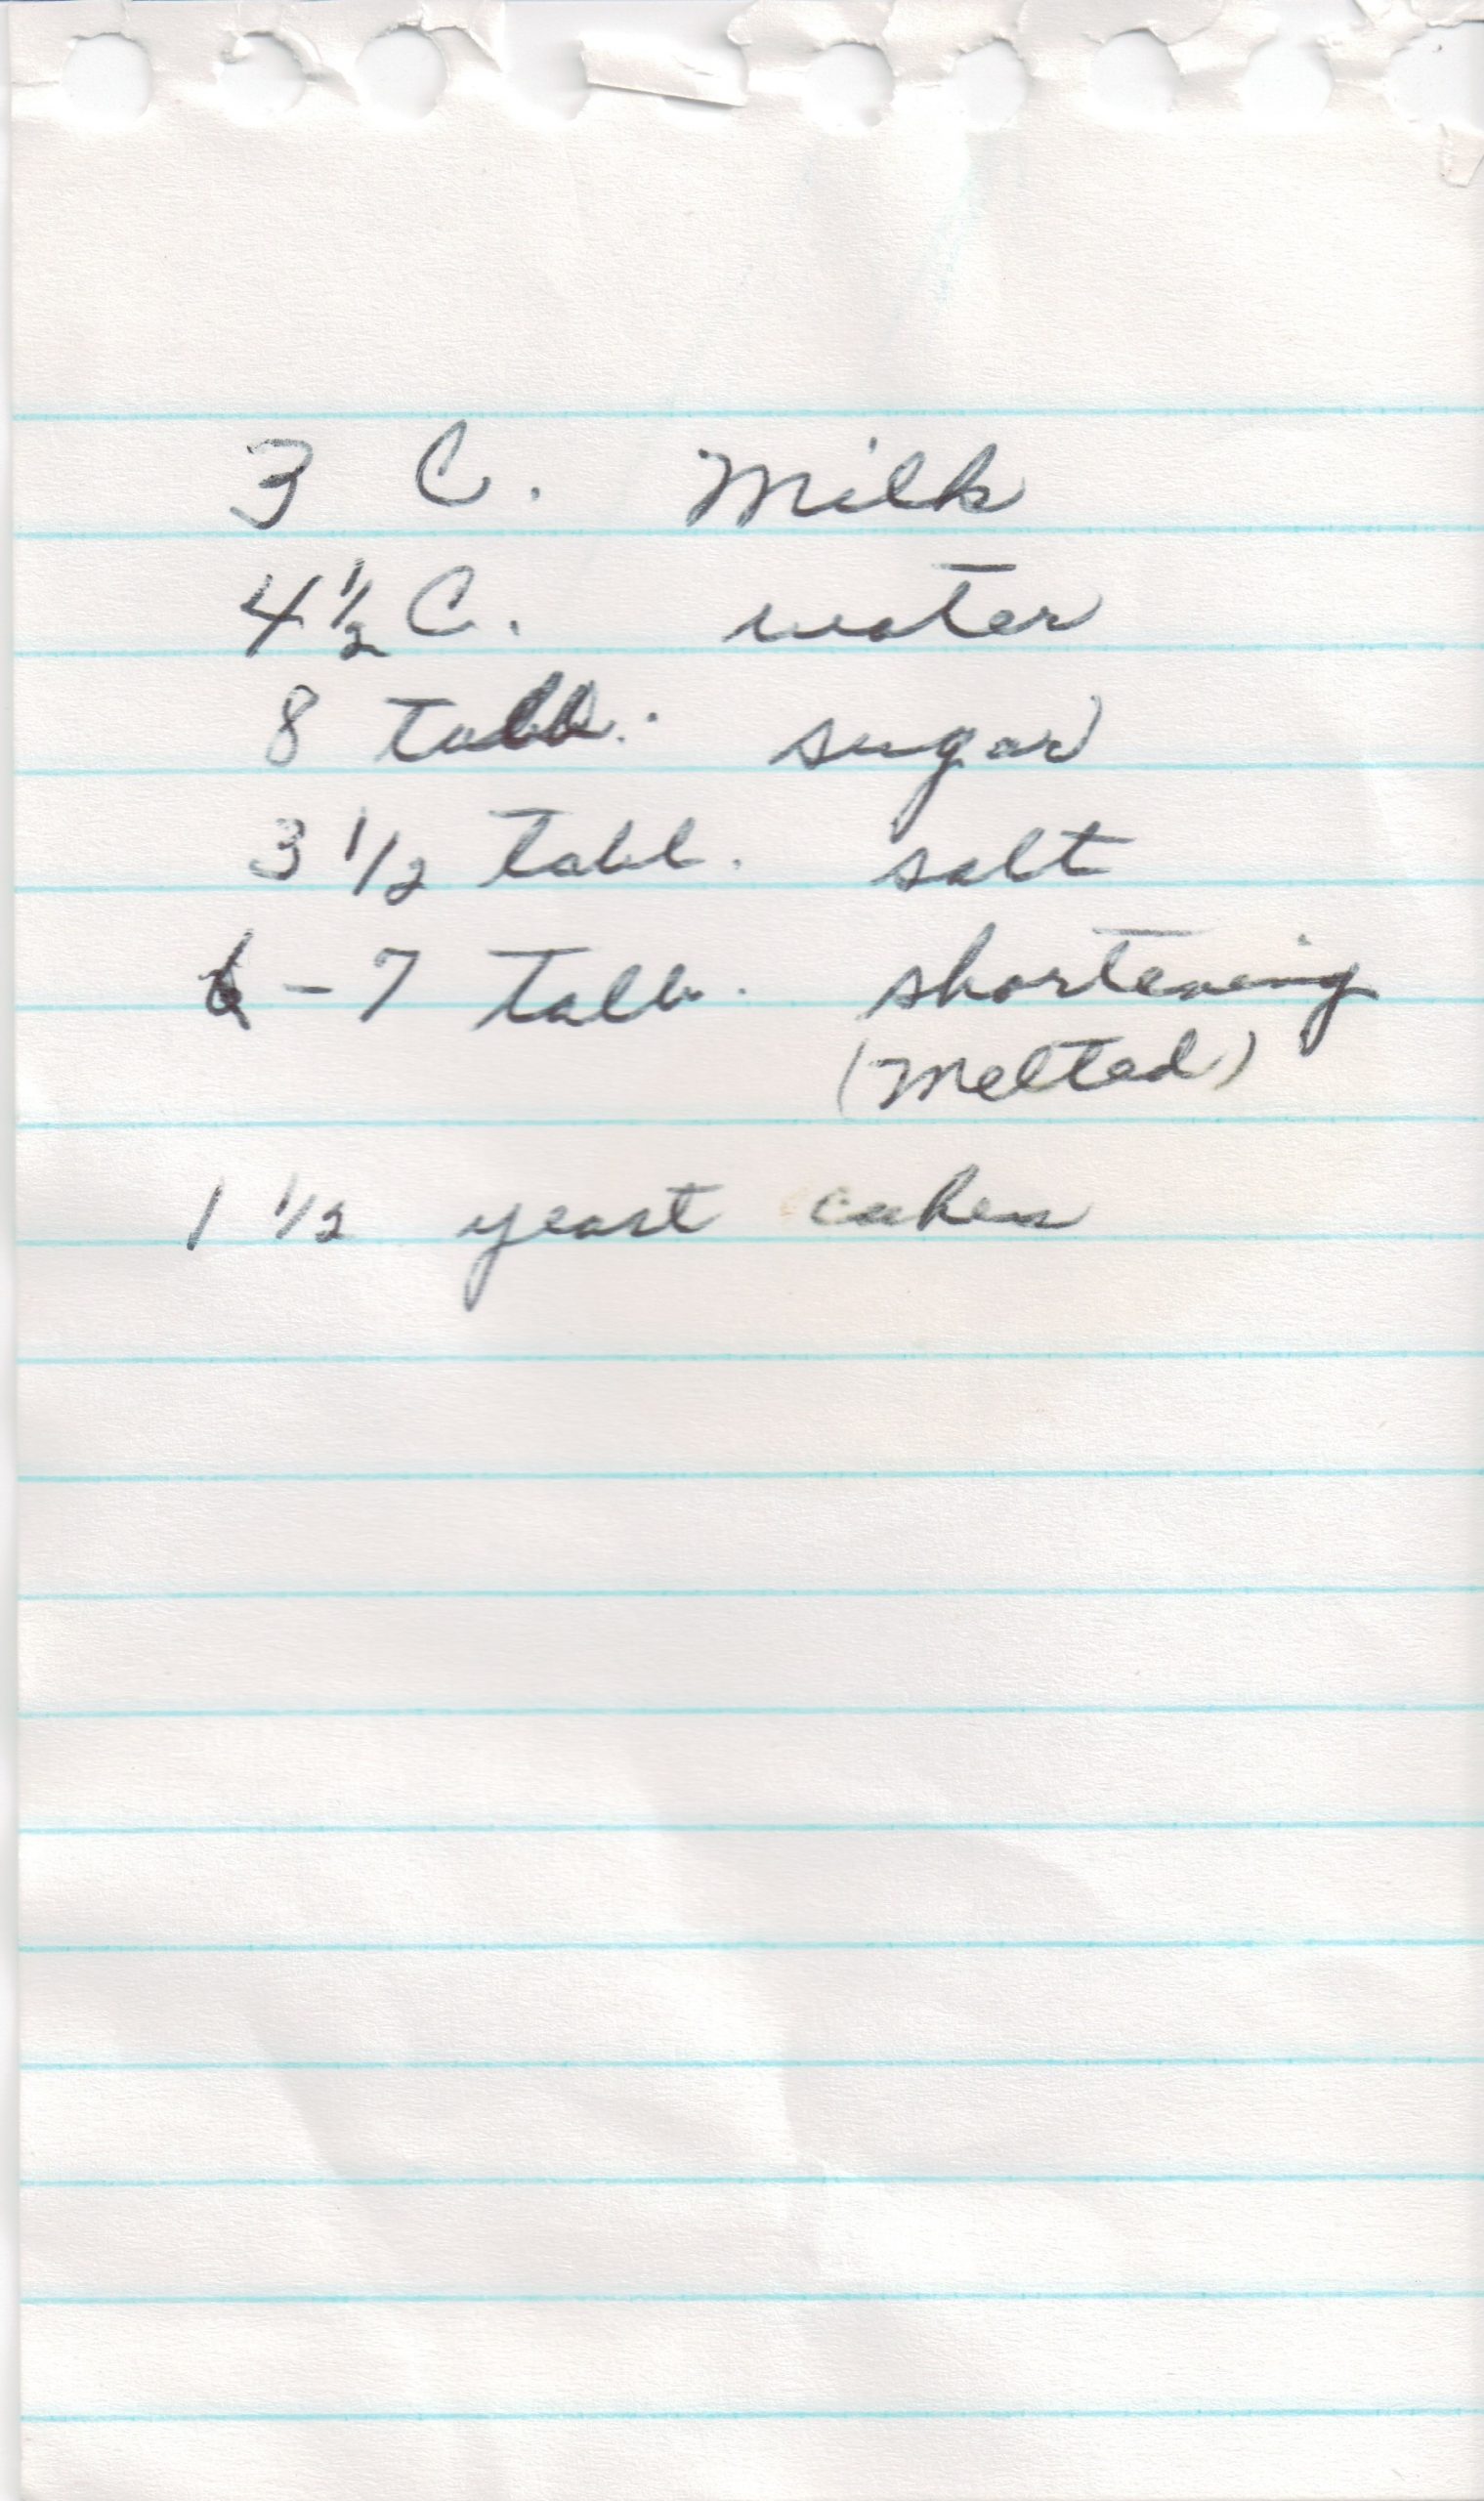 3 C. Milk
4 1/2 C. water
8 tabl. sugar
3 1/2 tabl. salt
6 - 7 tabl. shortening
(melted)
1 1/2 yeast cakes